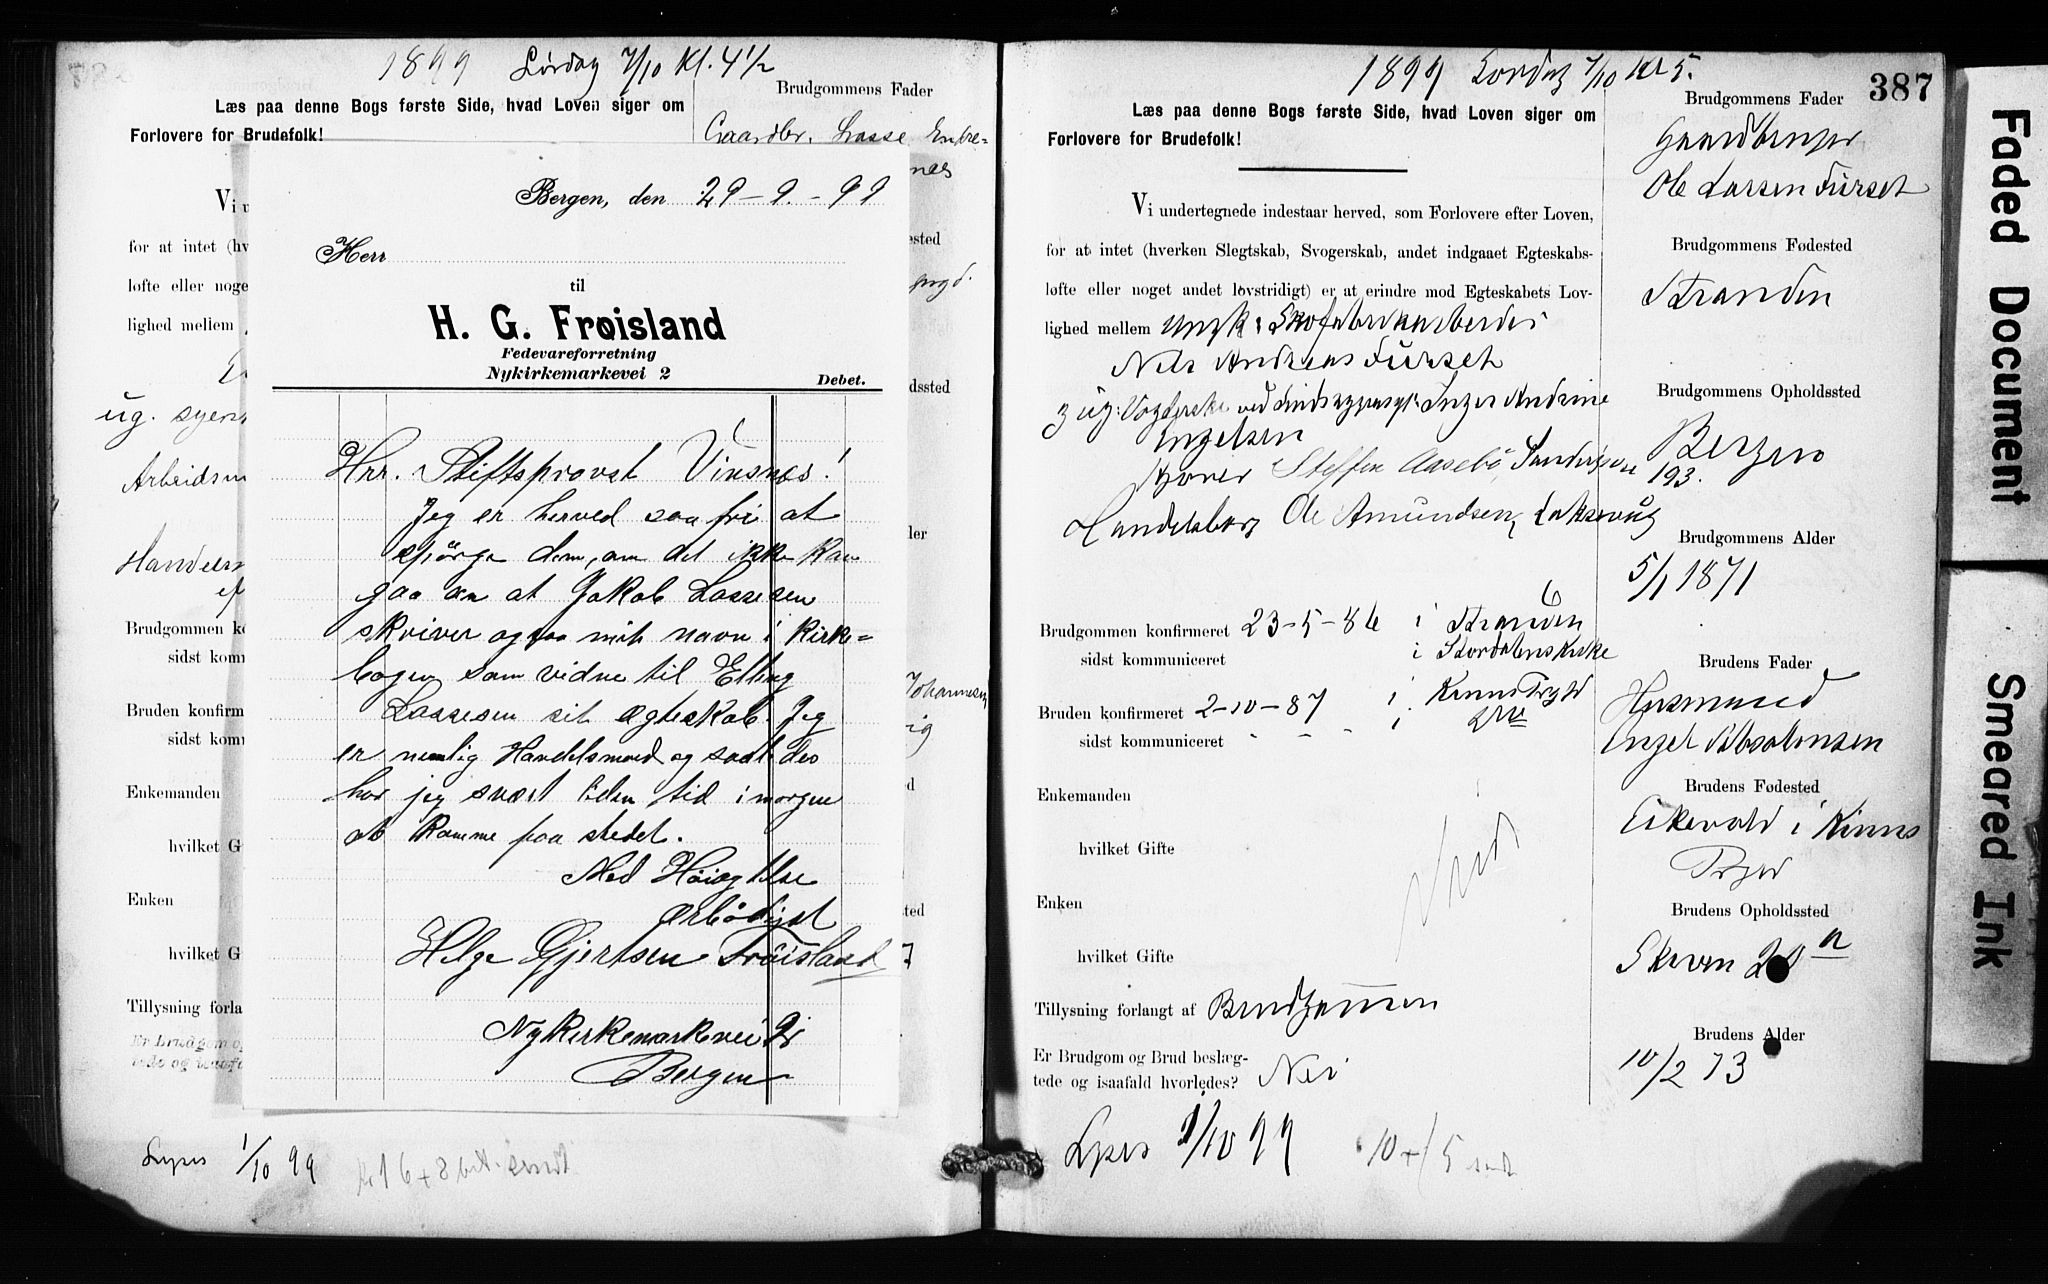 1899 Lördag 7/10 Kl. 4 1/2
Læs paa denne Bogs første Side, hvad Loven siger om
Forlovere for Brudefolk!
Brudgommens Fader
Gaardbr. Lasse Endre=
nes
Vi u
for at intet (hv
løfte eller noge
lighed mellem
ug. syers
Arbeidsm
Handelsm
ef
Brudgommen ko
sidst komm
Bruden konfirm
sidst komm
Enkemanden
hvilket G
Enken
hvilket G
Tillysning forla
Er Brudgom og
tede og isaafa
ested
dssted
ler
Johannesen
ig
ed
sted
Bergen, den 29-9.-99
Herr
til
H. G. Frøisland
Fedevareforretning
Nykirkemarkevei 2
Debet.
Hrr. Stiftsprovst Vinsnæs!
Jeg er herved saa fri at
spörge dem, om det ikke kan
gaa an at Jakob Lassesen
skriver ogsaa mit navn i Kirke=
bogen som vidne til Elling
Lassesen sit ægteskab. Jeg
er nemlig Handelsmand og saaledes
har jeg svært liden tid i morgen
at komme paa stedet.
Med Höiagtelse
ærbödigst
Helge Gjertsen Fröisland
Nykirkemarkevei 2
Bergen
Lyses 1/10 99
kr 16 + 8 bet. sendt
1899 Lördag 7/10 Kl 5.
387
Læs paa denne Bogs første Side, hvad Loven siger om
Forlovere for Brudefolk!
Brudgommens Fader
Gaardbruger
Ole Larsen Furset
Vi undertegnede indestaar herved, som Forlovere efter Loven,
for at intet (hverken Slegtskab, Svogerskab, andet indgaaet Egteskabs-
løfte eller noget andet lovstridigt) er at erindre mod Egteskabets Lov-
lighed mellem Ungk: Skofabrikarbeider
Nils Andreas Furset
og ug: Vogterske ved Sindssygeasyl: Inger Andrine
Engelsen
Steffen Aasebö, Sandvigen 193.
Handelsborg Ole Amundsen, Laksevåg
Brudgommens Fødested
Stranden
Brudgommens Opholdssted
Bergen
Brudgommens Alder
5/1 1871
Brudgommen konfirmeret 23-5-86 i Stranden
6
sidst kommuniceret i Stordalens Kirke
Bruden konfirmeret 2-10-87 i Kinns Prgld
sidst kommuniceret - - - i
Brudens Fader
Husmand
Engel Absalonsen
Enkemanden
hvilket Gifte
Brudens Fødested
Eikevold i Kinns
Prgld
Enken
hvilket Gifte
Brudens Opholdssted
Skiven 20 a
Tillysning forlangt af Brudgommen
Er Brudgom og Brud beslæg-
tede og isaafald hvorledes? Nei
Brudens Alder
10/2 73
Lyses 1/10 99
10 + 5 sendt
Faded Document
Smeared Ink